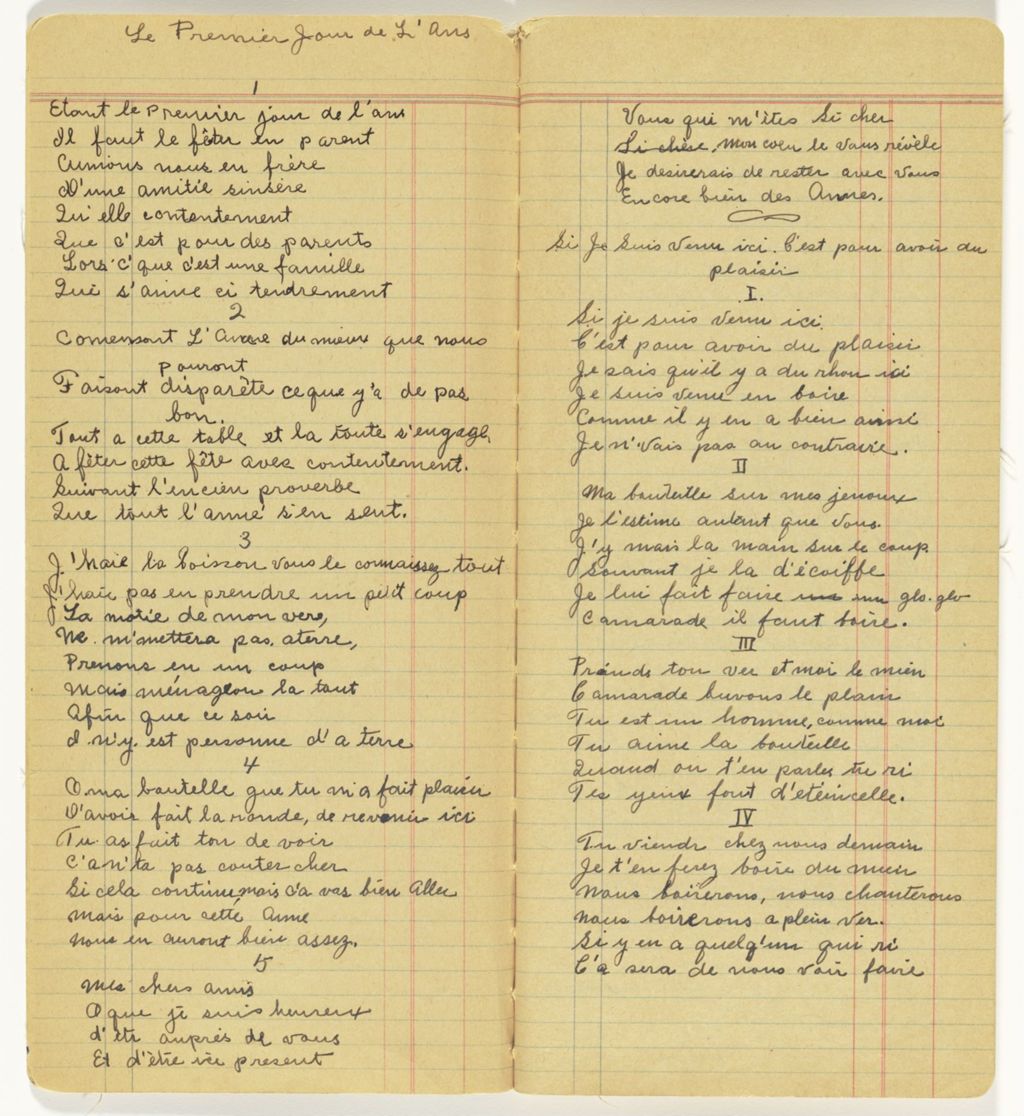 Le Premier Jour de L'Ans
1
Etant le premier jour de l'ans
Il faut le fêter en parent
Cunions nous en frère
D'une amitié sinsère
Qu'elle contentement
Que c'est pour des parents
Lors c'que c'est une famille
Qui s'aime ci tendrement
2
Comensont L'Anné du mieux que nous
pouront
Faisont disparête ceque y'a de pas
bon.
Tout a cette table et la toute s'engage
A fêter cette fête avec contentement.
Suivant l'encien proverbe
Que tout l'anné s'en sent.
3
J'haie la boisson vous le connaissez tout
J'haie pas en prendre un petit coup
La motié de mon vere,
Ne m'mettera pas aterre,
Prenons en un coup
Mais ménageon la tout
Afin que ce soir
I n'y est personne d'a terre
4
O ma boutelle que tu m'a fait plaisir
D'avoir fait la ronde, de revenir ici
Tu as fait ton de voir
C'a n'ta pas couter cher
Si cela continue mais c'a vas bien Aller
Mais pour cette Anne
Nous en auront bien assez.
5
Mes chers amis
O que je suis heureux
d'etr auprès de vous
Et d'être ici present
Vous qui m'êtes si cher
Si chèse, mon coeu le vous révèle
Je desirerais de rester avec vous
Encore bien des Annes.
Si Je Suis Venu ici. C'est pour avoir du
plaisir
I.
Si je suis venu ici.
C'est pour avoir du plaisir
Je sais qu'il y a du rhon ici
Je suis venu en boire
Comme il y en a bien aimé
Je n'vais pas au contraire.
II
Ma bouteille sur mes jenoux
Je l'estime autant que vous.
J'y mais la main sur le coup.
Souvant je la d'écoiffe
Je lui fait faire un un glo. glo
Camarade il faut boire.
III
Prends ton ver et moi le mien
Camarade buvons le plain
Tu est un homme, comme moi
Tu aime la bouteille
Quand on t'en parles tu ri
Tes yeux font d'eteincelle.
IV
Tu viendr chez nous demain
Je t'en ferez boire du mien
Nous boirerons, nous chanterons
Nous boirerons a plein ver.
Si y en a quelq'un qui ri
C'a sera de nous voir faire